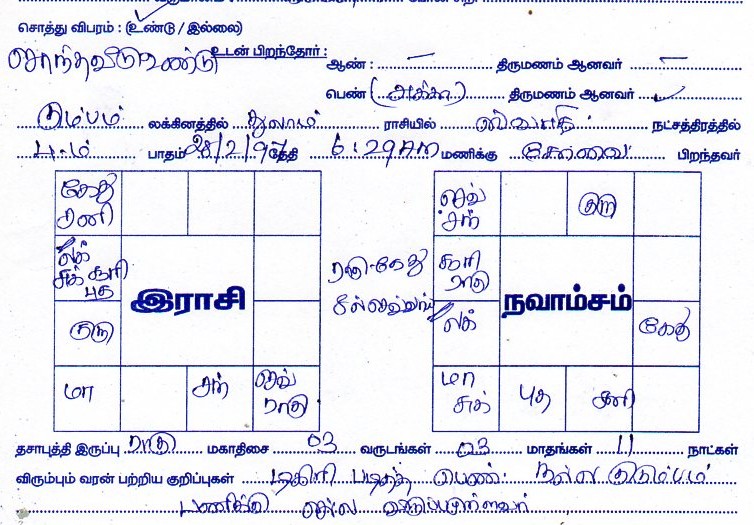 சொத்து விபரம் : (உண்டு / இல்லை)
சொந்தவீடு உண்டு உடன் பிறந்தோர் : ஆண் : – திருமணம் ஆனவர் –
பெண் (அக்கா) திருமணம் ஆனவர் ✓
கும்பம் லக்கினத்தில் துலாம் ராசியில் ஸ்வாதி நட்சத்திரத்தில்
4-ம் பாதம் 28/2/97 தேதி 6:29 AM மணிக்கு கோவை பிறந்தவர்
கேது சனி
லக் சுக் சூரி புத
குரு
மா
சந்
செவ் ராகு
இராசி
ராகு-கேது
செவ் சந்
குரு
சூரி ராகு
லக்
கேது
மா சுக்
புத
சனி
நவாம்சம்
தசாபுத்தி இருப்பு ராகு மகாதிசை 03 வருடங்கள் 03 மாதங்கள் 11 நாட்கள்
விரும்பும் வரன் பற்றிய குறிப்புகள் டிகிரி படித்த பெண். நல்ல குடும்பம்
பணிக்கு செல்ல விருப்பமுள்ளவர்